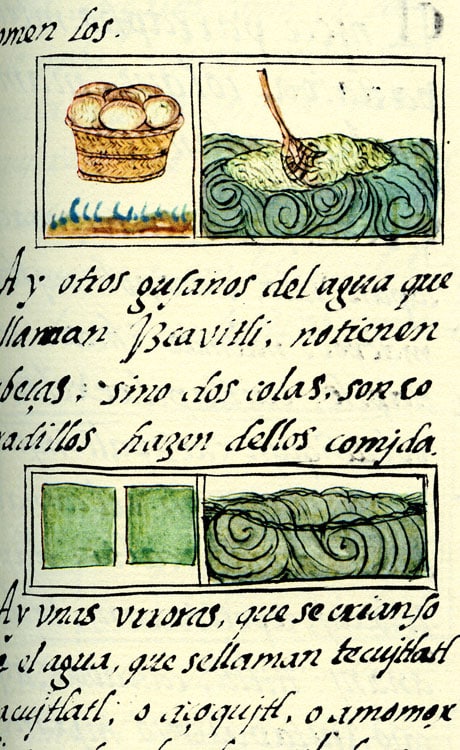 omen los.
Ay otros gusanos del agua que
llaman Yzcavitli, no tienen
beças, sino dos colas, son co
radillos hazen dellos comida.
Ay vnas vrroras, que se crian so
el agua, que se llaman tecujtlatl
acujtlatl, o açoqujtl, o amomox